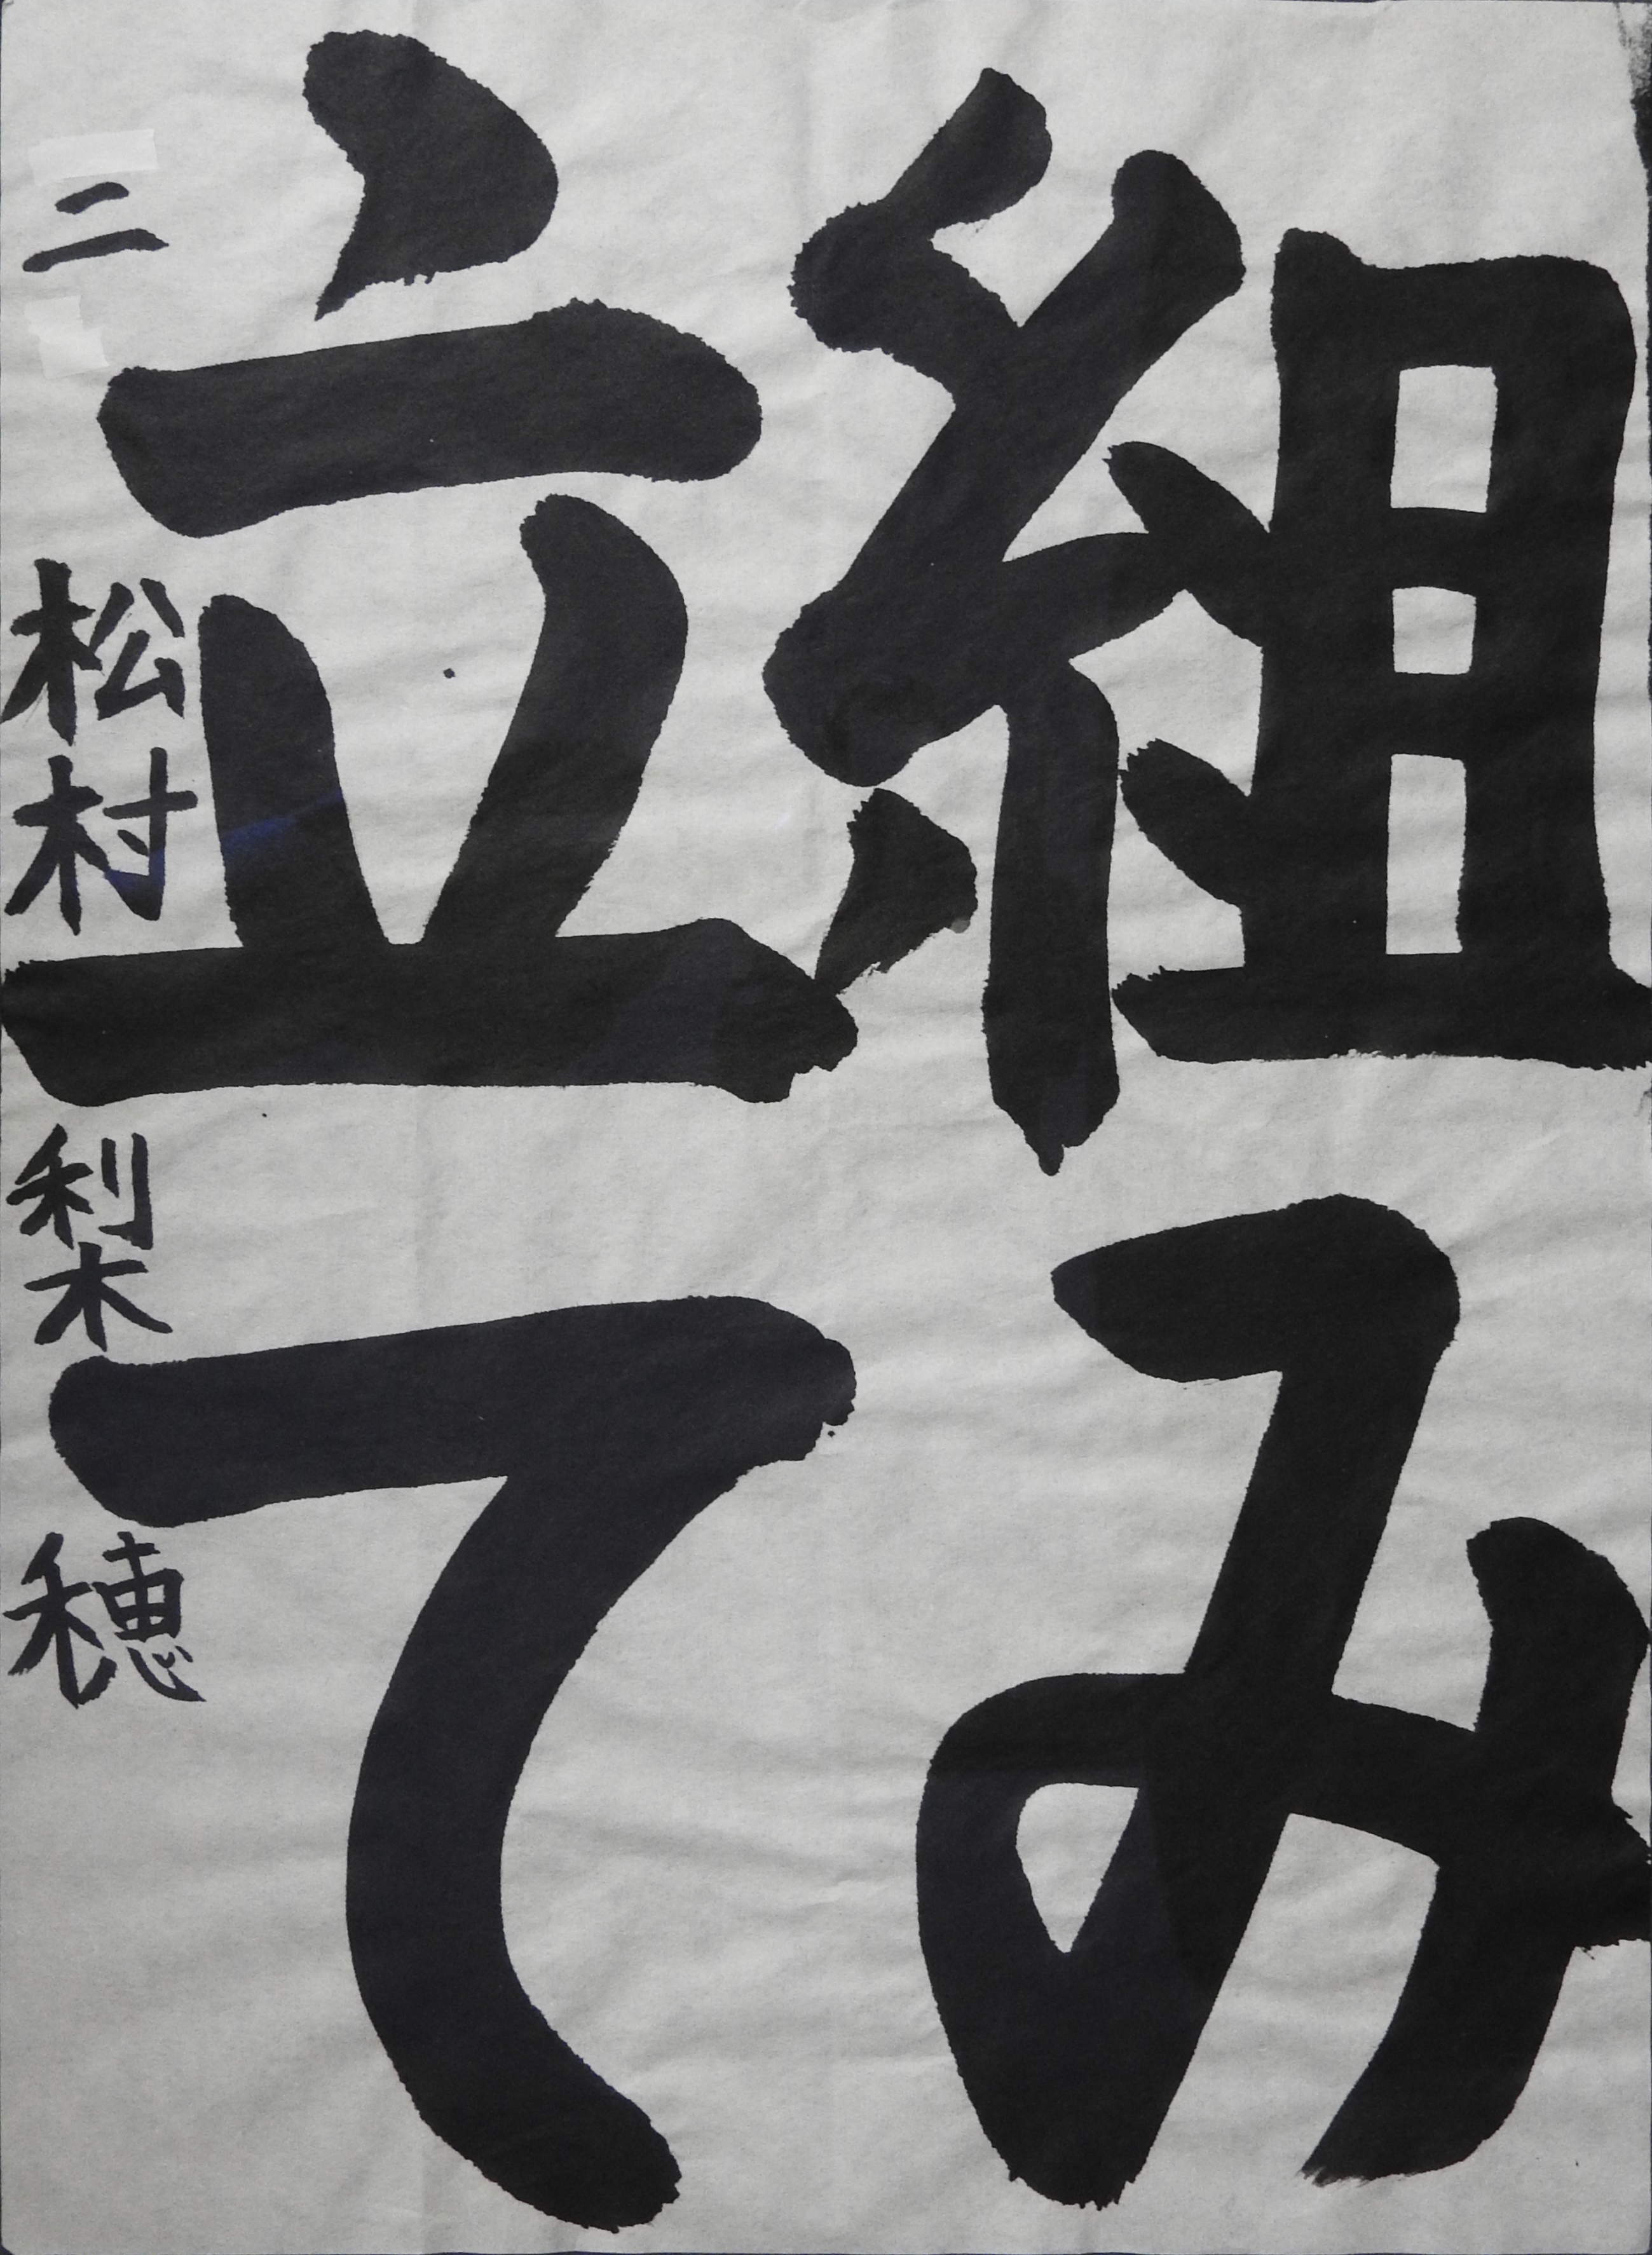 組み
立て
二 松村梨穂